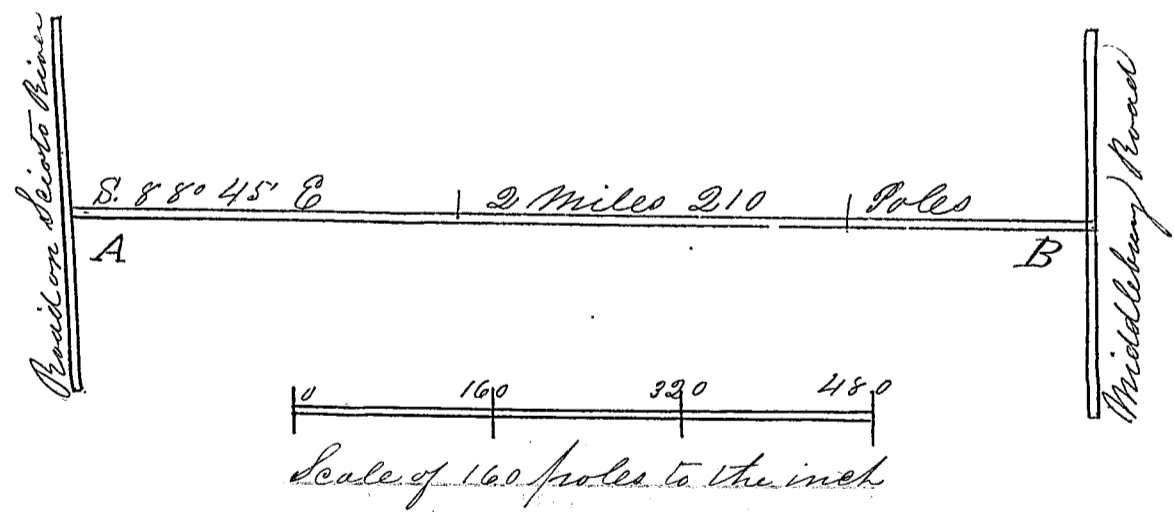 Road on Scioto River
S. 88° 45' E 2 Miles 210 Poles
A
B
Middlebury Road
0 160 320 480
Scale of 160 poles to the inch